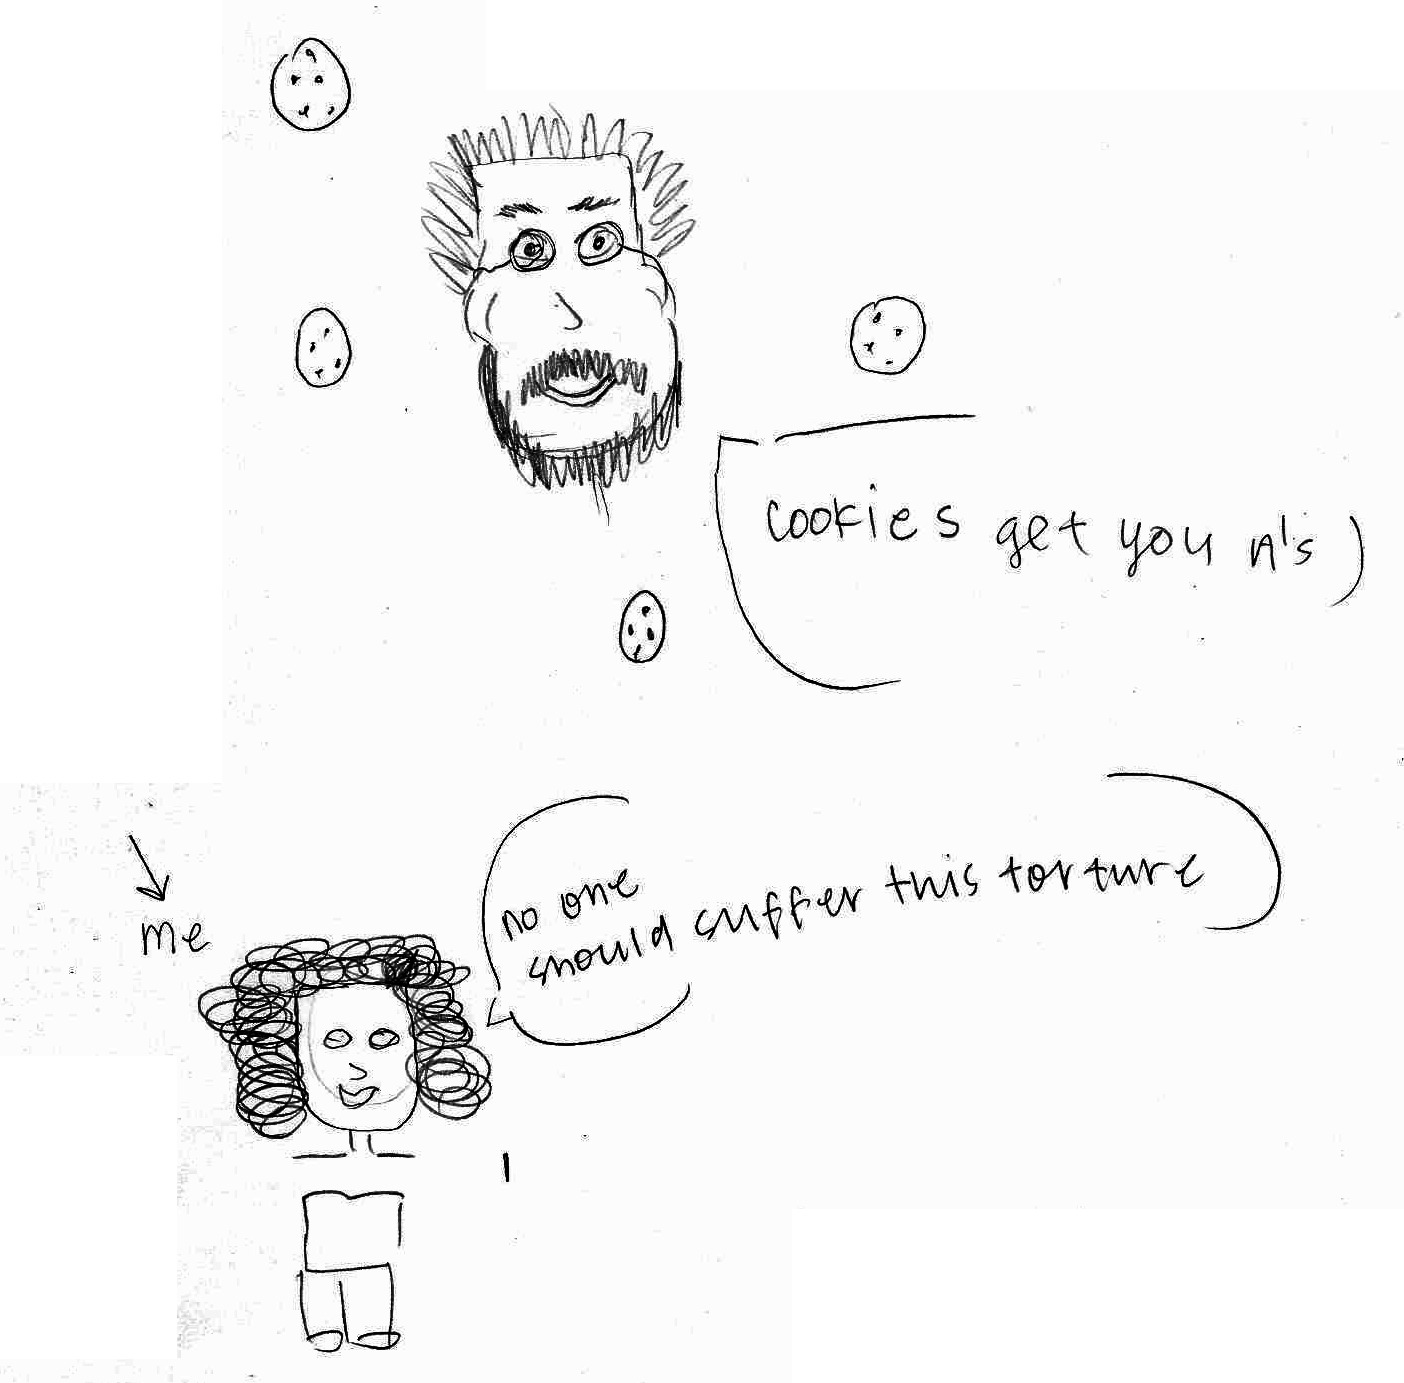 cookies get you A's
me
no one
should suffer this torture